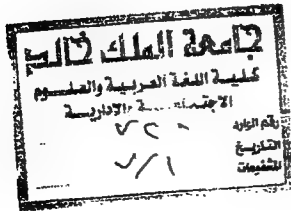 جامعة الملك خالد
كلية اللغة العربية والعلوم
الاجتماعية والإدارية
رقم الوارد ٧٢٠
التاريخ
المشفوعات ٧/١